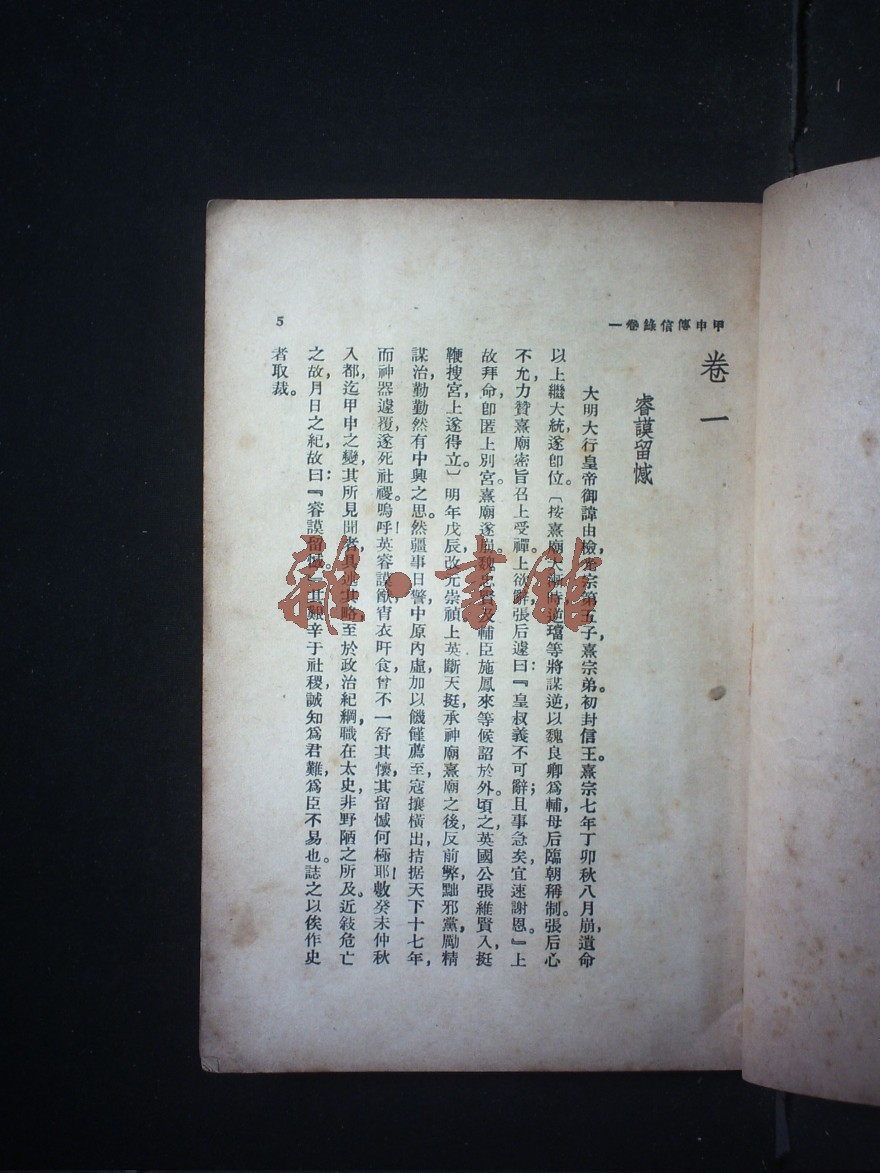 甲申傳信錄卷一
5
卷一
睿謨留憾
大明大行皇帝御諱由檢，光宗第五子，熹宗弟。初封信王。熹宗七年丁卯秋八月崩，遺命
以上繼大統，遂卽位。〔按熹廟大漸時，逆璫等將謀逆，以魏良卿爲輔，母后臨朝稱制。張后心
不允，力贊熹廟密旨召上受禪。上欲辭，張后遽曰：『皇叔義不可辭；且事急矣，宜速謝恩。』上
故拜命，卽匿上別宮。熹廟遂崩。魏忠賢及輔臣施鳳來等候詔於外。頃之，英國公張維賢入，挺
鞭搜宮，上遂得立。〕明年戊辰，改元崇禎。上英斷天挺，承神廟熹廟之後，反前弊，黜邪黨，勵精
謀治，勤勤然有中興之思。然疆事日警，中原內虛，加以饑饉薦至，寇攘橫出，拮据天下十七年，
而神器遽覆，遂死社稷。嗚呼！英睿謨猷，宵衣旰食，曾不一舒其懷，其留憾何極耶！𣀈癸未仲秋
入都，迄甲申之變，其所見聞者，具述其略。至於政治紀綱，職在太史，非野陋之所及。近敍危亡
之故，月日之紀，故曰：『睿謨留憾。』其艱辛于社稷，誠知爲君難，爲臣不易也。誌之以俟作史
者取裁。
雜·書館